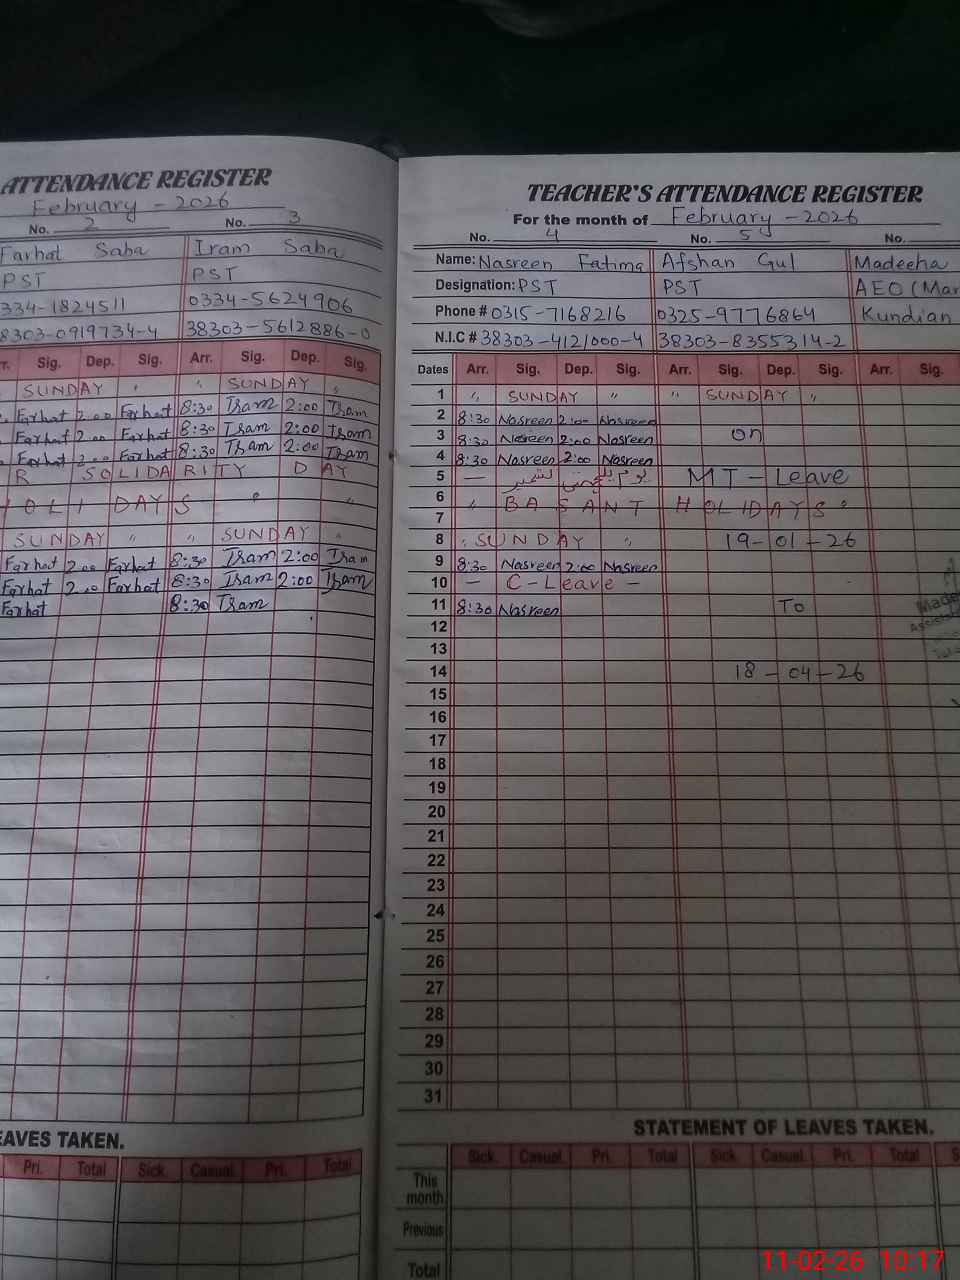 ATTENDANCE REGISTER
February - 2026
No. 2 No. 3
Farhat Saba Iram Saba
PST PST
334-1824511 0334-5624906
8303-0919734-4 38303-5612886-0
Sig. Dep. Sig. Arr. Sig. Dep. Sig.
SUNDAY " " SUNDAY "
Farhat 2.00 Farhat 8:30 Iram 2:00 Iram
Farhat 2.00 Farhat 8:30 Iram 2:00 Iram
Farhat 2.00 Farhat 8:30 Iram 2:00 Iram
R SOLIDARITY DAY
OLIDAYS " "
SUNDAY " " SUNDAY "
Farhat 2.00 Farhat 8:30 Iram 2:00 Iram
Farhat 2.00 Farhat 8:30 Iram 2:00 Iram
Farhat 8:30 Iram
EAVES TAKEN.
Pri. Total Sick. Casual. Pri. Total
TEACHER'S ATTENDANCE REGISTER
For the month of February - 2026
No. 4 No. 5 No.
Name: Nasreen Fatima Afshan Gul Madeeha
Designation: PST PST AEO (Mar
Phone # 0315-7168216 0325-9776864 Kundian
N.I.C # 38303-4121000-4 38303-8355314-2
Dates Arr. Sig. Dep. Sig. Arr. Sig. Dep. Sig. Arr. Sig.
1 " SUNDAY " " SUNDAY "
2 8:30 Nasreen 2:00 Nasreen
3 8:30 Nasreen 2:00 Nasreen on
4 8:30 Nasreen 2:00 Nasreen
5 — یوم یکجہتی کشمیر MT - Leave
6 " BASANT HOLIDAYS "
7
8 " SUNDAY " 19-01-26
9 8:30 Nasreen 2:00 Nasreen
10 — C-Leave —
11 8:30 Nasreen To
12
13
14 18-04-26
15
16
17
18
19
20
21
22
23
24
25
26
27
28
29
30
31
STATEMENT OF LEAVES TAKEN.
Sick. Casual. Pri. Total Sick. Casual. Pri. Total S
This month
Previous
Total
11-02-26 10:17